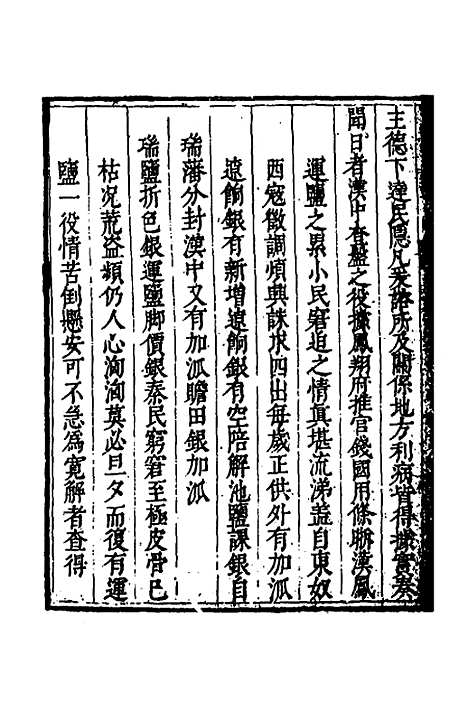 主德下達民隱凡奉諮所及關係地方利病皆得據實奏
聞日者漢中查盤之役據鳳翔府推官錢國用條陳漢鳳
運鹽之累小民窘迫之情真堪流涕蓋自東奴
西寇徵調煩興誅求四出每歲正供外有加派
遼餉銀有新增遼餉銀有空陪解池鹽課銀自
瑞藩分封漢中又有加派贍田銀加派
瑞鹽折色銀運鹽脚價銀秦民窮窘至極皮骨已
枯况荒盜頻仍人心洶洶莫必旦夕而復有運
鹽一役情苦倒懸安可不急為寬解者查得